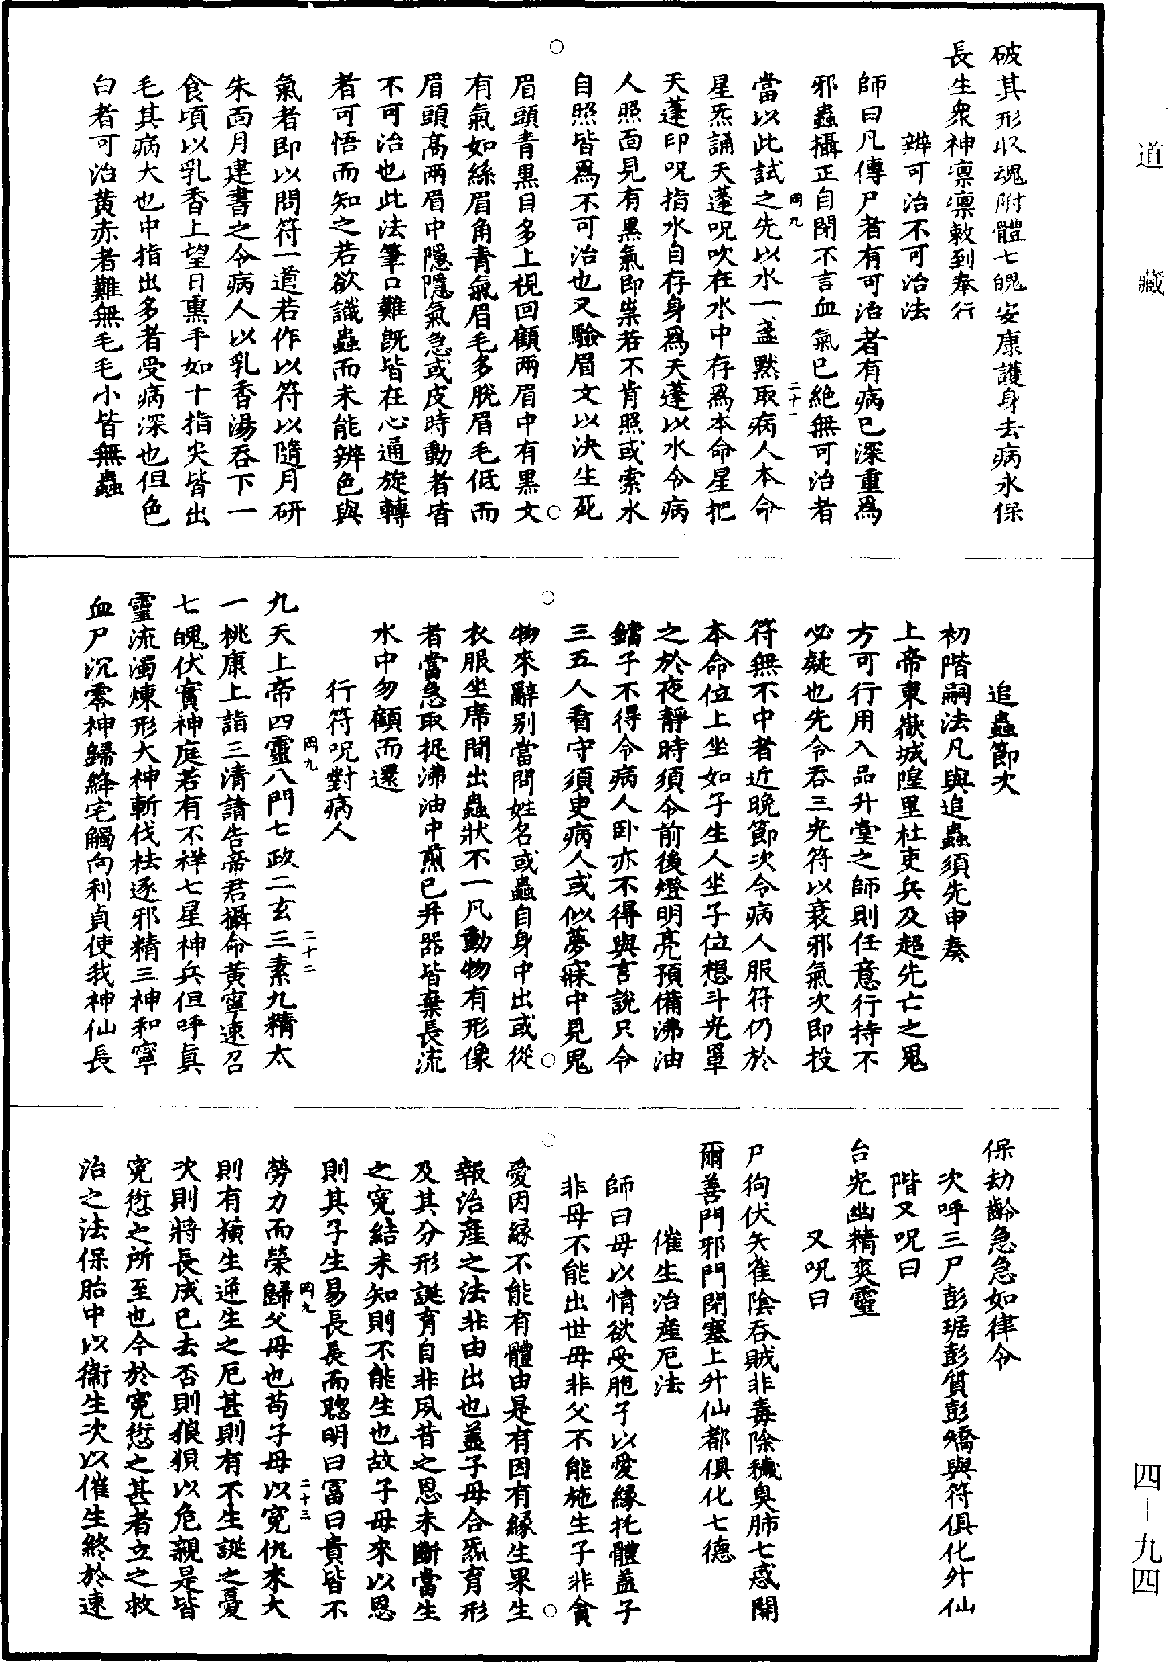 道藏
四—九四
破其形收魂附體七魄安康護身去病永保
長生衆神凛凛敕到奉行
辨可治不可治法
師曰凡傳尸者有可治者有病已深重爲
邪蟲攝正自閉不言血氣已絶無可治者
當以此試之先以水一盞黙取病人本命
岡九
二十一
星炁誦天蓬呪吹在水中存爲本命星把
天蓬印呪指水自存身爲天蓬以水令病
人照面見有黑氣即祟若不肯照或索水
自照皆爲不可治也又驗眉文以決生死
眉頭青黑目多上視回顧兩眉中有黑文
有氣如絲眉角青氣眉毛多脱眉毛低而
眉頭高兩眉中隱隱氣急或皮時動者皆
不可治也此法筆口難旣皆在心通旋轉
者可悟而知之若欲識蟲而未能辨色與
氣者即以問符一道若作以符以隨月研
朱面月建書之令病人以乳香湯吞下一
食頃以乳香上望日熏手如十指尖皆出
毛其病大也中指出多者受病深也但色
白者可治黄赤者難無毛毛小皆無蟲
追蟲節次
初階嗣法凡與追蟲須先申奏
上帝東嶽城隍里社吏兵及超先亡之鬼
方可行用入品升堂之師則任意行持不
必疑也先令吞三光符以衰邪氣次即投
符無不中者近晚節次令病人服符仍於
本命位上坐如子生人坐子位想斗光罩
之於夜靜時須令前後燈明亮預備沸油
鐺子不得令病人卧亦不得與言說只令
三五人看守須臾病人或似夢寐中見鬼
物來辭别當問姓名或蟲自身中出或從
衣服坐席間出蟲狀不一凡動物有形像
者當急取捉沸油中煎已并器皆棄長流
水中勿顧而還
行符呪對病人
九天上帝四靈八門七政二玄三素九精太
岡九
二十二
一桃康上詣三清請告帝君攝命黄寧速召
七魄伏實神庭若有不禅七星神兵但呼眞
靈流濁煉形大神斬伐祛逐邪精三神和寧
血尸沉零神歸絳宅觸向利貞使我神仙長
保劫齡急急如律令
次呼三尸彭琚彭質彭矯與符俱化升仙
階又呪曰
台光幽精爽靈
又呪曰
尸狗伏矢雀陰吞賊非毒除穢臭肺七惑開
爾善門邪門閉塞上升仙都俱化七德
催生治産厄法
師曰母以情欲受胞子以愛緣托體蓋子
非母不能出世毋非父不能施生子非貪
愛因緣不能有體由是有因有緣生果生
報治産之法非由出也蓋子母合炁育形
及其分形誕育自非夙昔之恩未斷當生
之寃結未知則不能生也故子母來以恩
則其子生易長長而聰明曰冨曰貴皆不
勞力而榮歸父母也苟子母以寃仇來大
岡九
二十三
則有横生逆生之厄甚則有不生誕之憂
次則將長成已去否則狼狽以危親是皆
寃愆之所至也今於寃愆之甚者立之救
治之法保胎中以衞生次以催生終於速